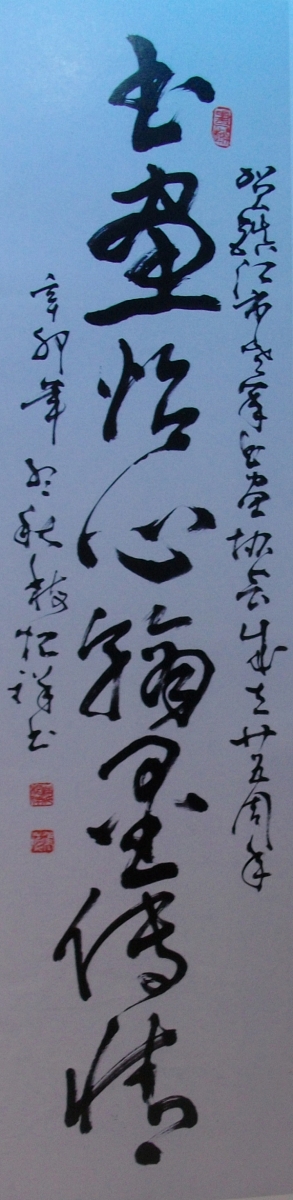 贺镇江市老军人书画协会成立廿五周年
书画怡心翰墨传情
辛卯年初秋
书